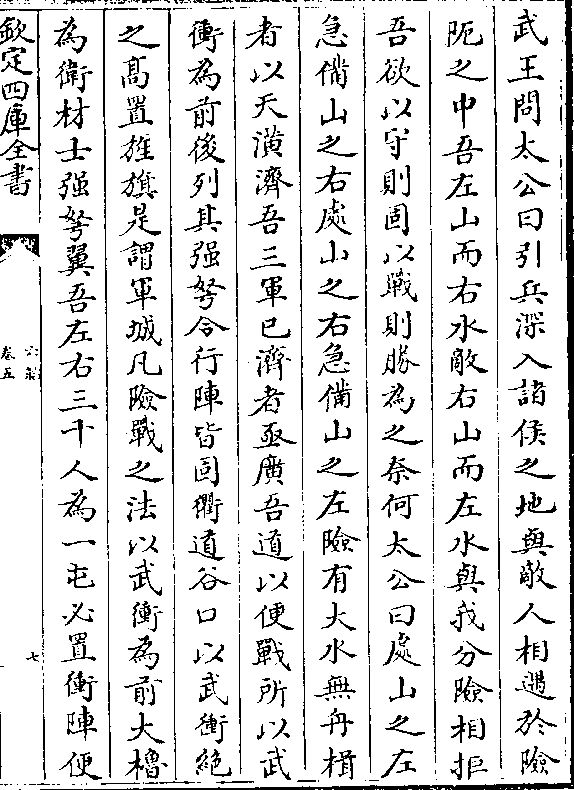 武王問太公曰引兵深入諸侯之地與敵人相遇於險
阨之中吾左山而右水敵右山而左水與我分險相拒
吾欲以守則固以戰則勝為之奈何太公曰處山之左
急備山之右處山之右急備山之左險有大水無舟楫
者以天潢濟吾三軍已濟者亟廣吾道以便戰所以武
衝為前後列其强弩令行陣皆固衢道谷口以武衝絶
之髙置旌旗是謂軍城凡險戰之法以武衝為前大櫓
為衛材士强弩翼吾左右三千人為一屯必置衝陣便
欽定四庫全書
六韜
卷五
七